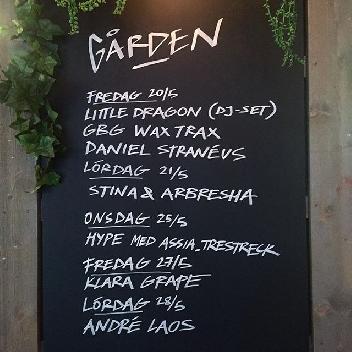 GÅRDEN
FREDAG 20/5
LITTLE DRAGON (DJ-SET)
GBG WAXTRAX
DANIEL STRANÉUS
LÖRDAG 21/5
STINA & ARBRESHA
ONSDAG 25/5
HYPE MED ASSIA_TRESTRECK
FREDAG 27/5
KLARA GRAPE
LÖRDAG 28/5
ANDRÉ LAOS